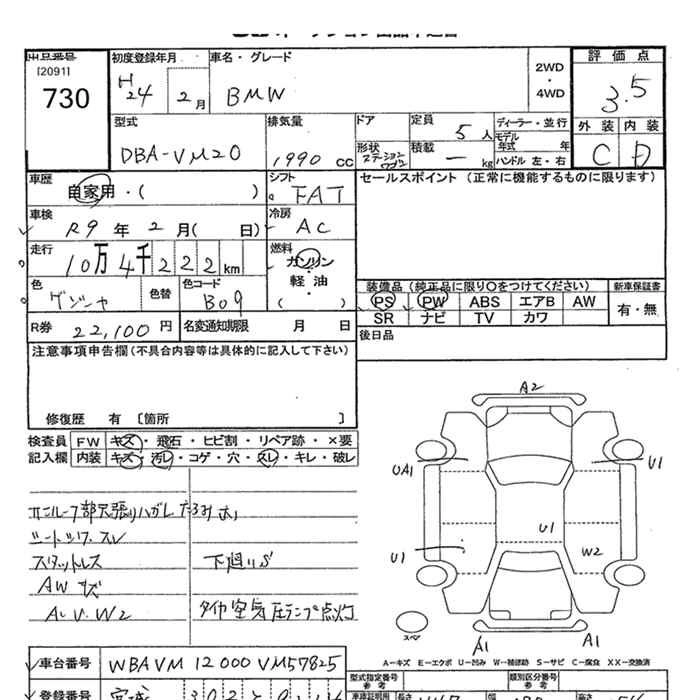 出品番号
[2091]
730
初度登録年月
H24 2月
車名・グレード
BMW
2WD
・
4WD
評価点
3.5
外装 内装
C D
型式
DBA-VM20
排気量
1990 CC
ドア
形状
ステーションワゴン
定員
5人
積載
ー kg
ディーラー・並行
モデル
年式 年
ハンドル 左・右
車歴
自家用・( )
シフト
FAT
セールスポイント (正常に機能するものに限ります)
車検
R9年2月( 日)
冷房
AC
走行
10万4千222km
燃料
ガソリン
・
軽油
( )
色
色替
色コード
B09
装備品(純正品に限り○をつけてください)
新車保証書
PS PW ABS エアB AW
有・無
SR ナビ TV カワ
R券 22,100円
名変通知期限 月 日
後日品
注意事項申告欄(不具合内容等は具体的に記入して下さい)
修復歴 有 [箇所 ]
検査員 FW キズ・飛石・ヒビ割・リペア跡・×要
記入欄 内装 キズ・汚レ・コゲ・穴・スレ・キレ・破レ
シートシワ・スレ
スタットレス
下廻りS
AW キズ
タイヤ空気圧ランプ点灯
A2
UA1
U1
U1
U1
W2
スペア
A1
A1
A－キズ E－エクボ U－凹み W－補修跡 S－サビ C－腐食 XX－交換済
車台番号 WBAVM 12000VM57825
型式指定番号
参考
類別区分番号
参考
登録番号 宮城